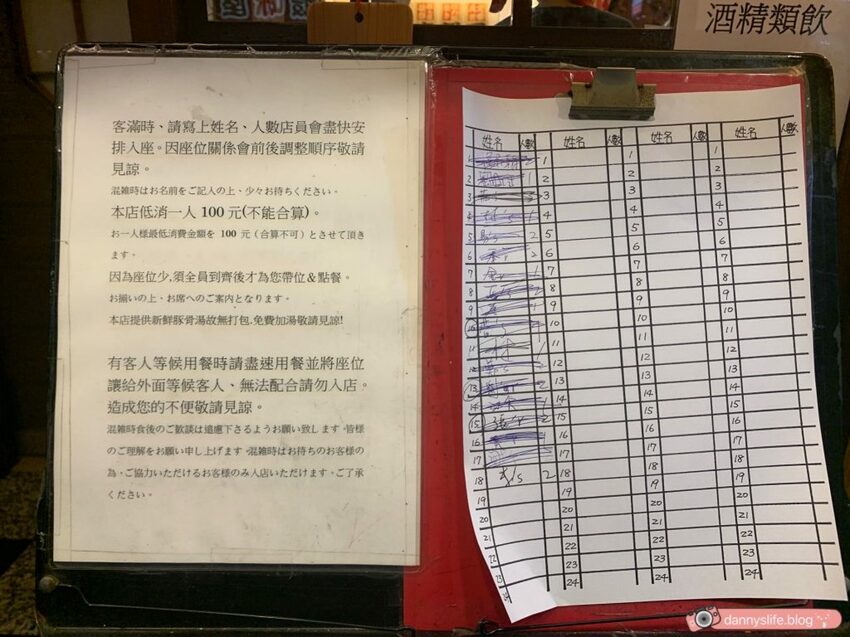 酒精類飲
客滿時、請寫上姓名、人數店員會盡快安
排入座。因座位關係會前後調整順序敬請
見諒。
混雑時はお名前をご記入の上、少々お待ちください。
本店低消一人 100 元(不能合算)。
お一人様最低消費金額を 100 元（合算不可）とさせて頂き
ます。
因為座位少,須全員到齊後才為您帶位&點餐。
お揃いの上、お席へのご案内となります。
本店提供新鮮豚骨湯故無打包.免費加湯敬請見諒!
有客人等候用餐時請盡速用餐並將座位
讓給外面等候客人、無法配合請勿入店。
造成您的不便敬請見諒。
混雑時食後のご歓談は遠慮下さるようお願い致します。皆様
のご理解をお願い申し上げます。混雑時はお待ちのお客様の
為、ご協力いただけるお客様のみ入店いただけます。ご了承
ください。
姓名 人數 姓名 人數 姓名 人數 姓名 人數
1 1 1
2 2 2 2
3 3 3 3
4 4 4 4
5 5 5 5
6 6 6 6
7 7 7 7
8 8 8 8
9 9 9 9
10 10 10 10
11 11 11 11
12 12 12 12
13 13 13 13
14 14 14 14
15 15 15 15
16 16 16 16
17 17 17 17
18 2 18 18 18
19 19 19 19
20 20 20 20
21 21 21 21
22 22 22 22
23 23 23 23
24 24 24
dannyslife.blog